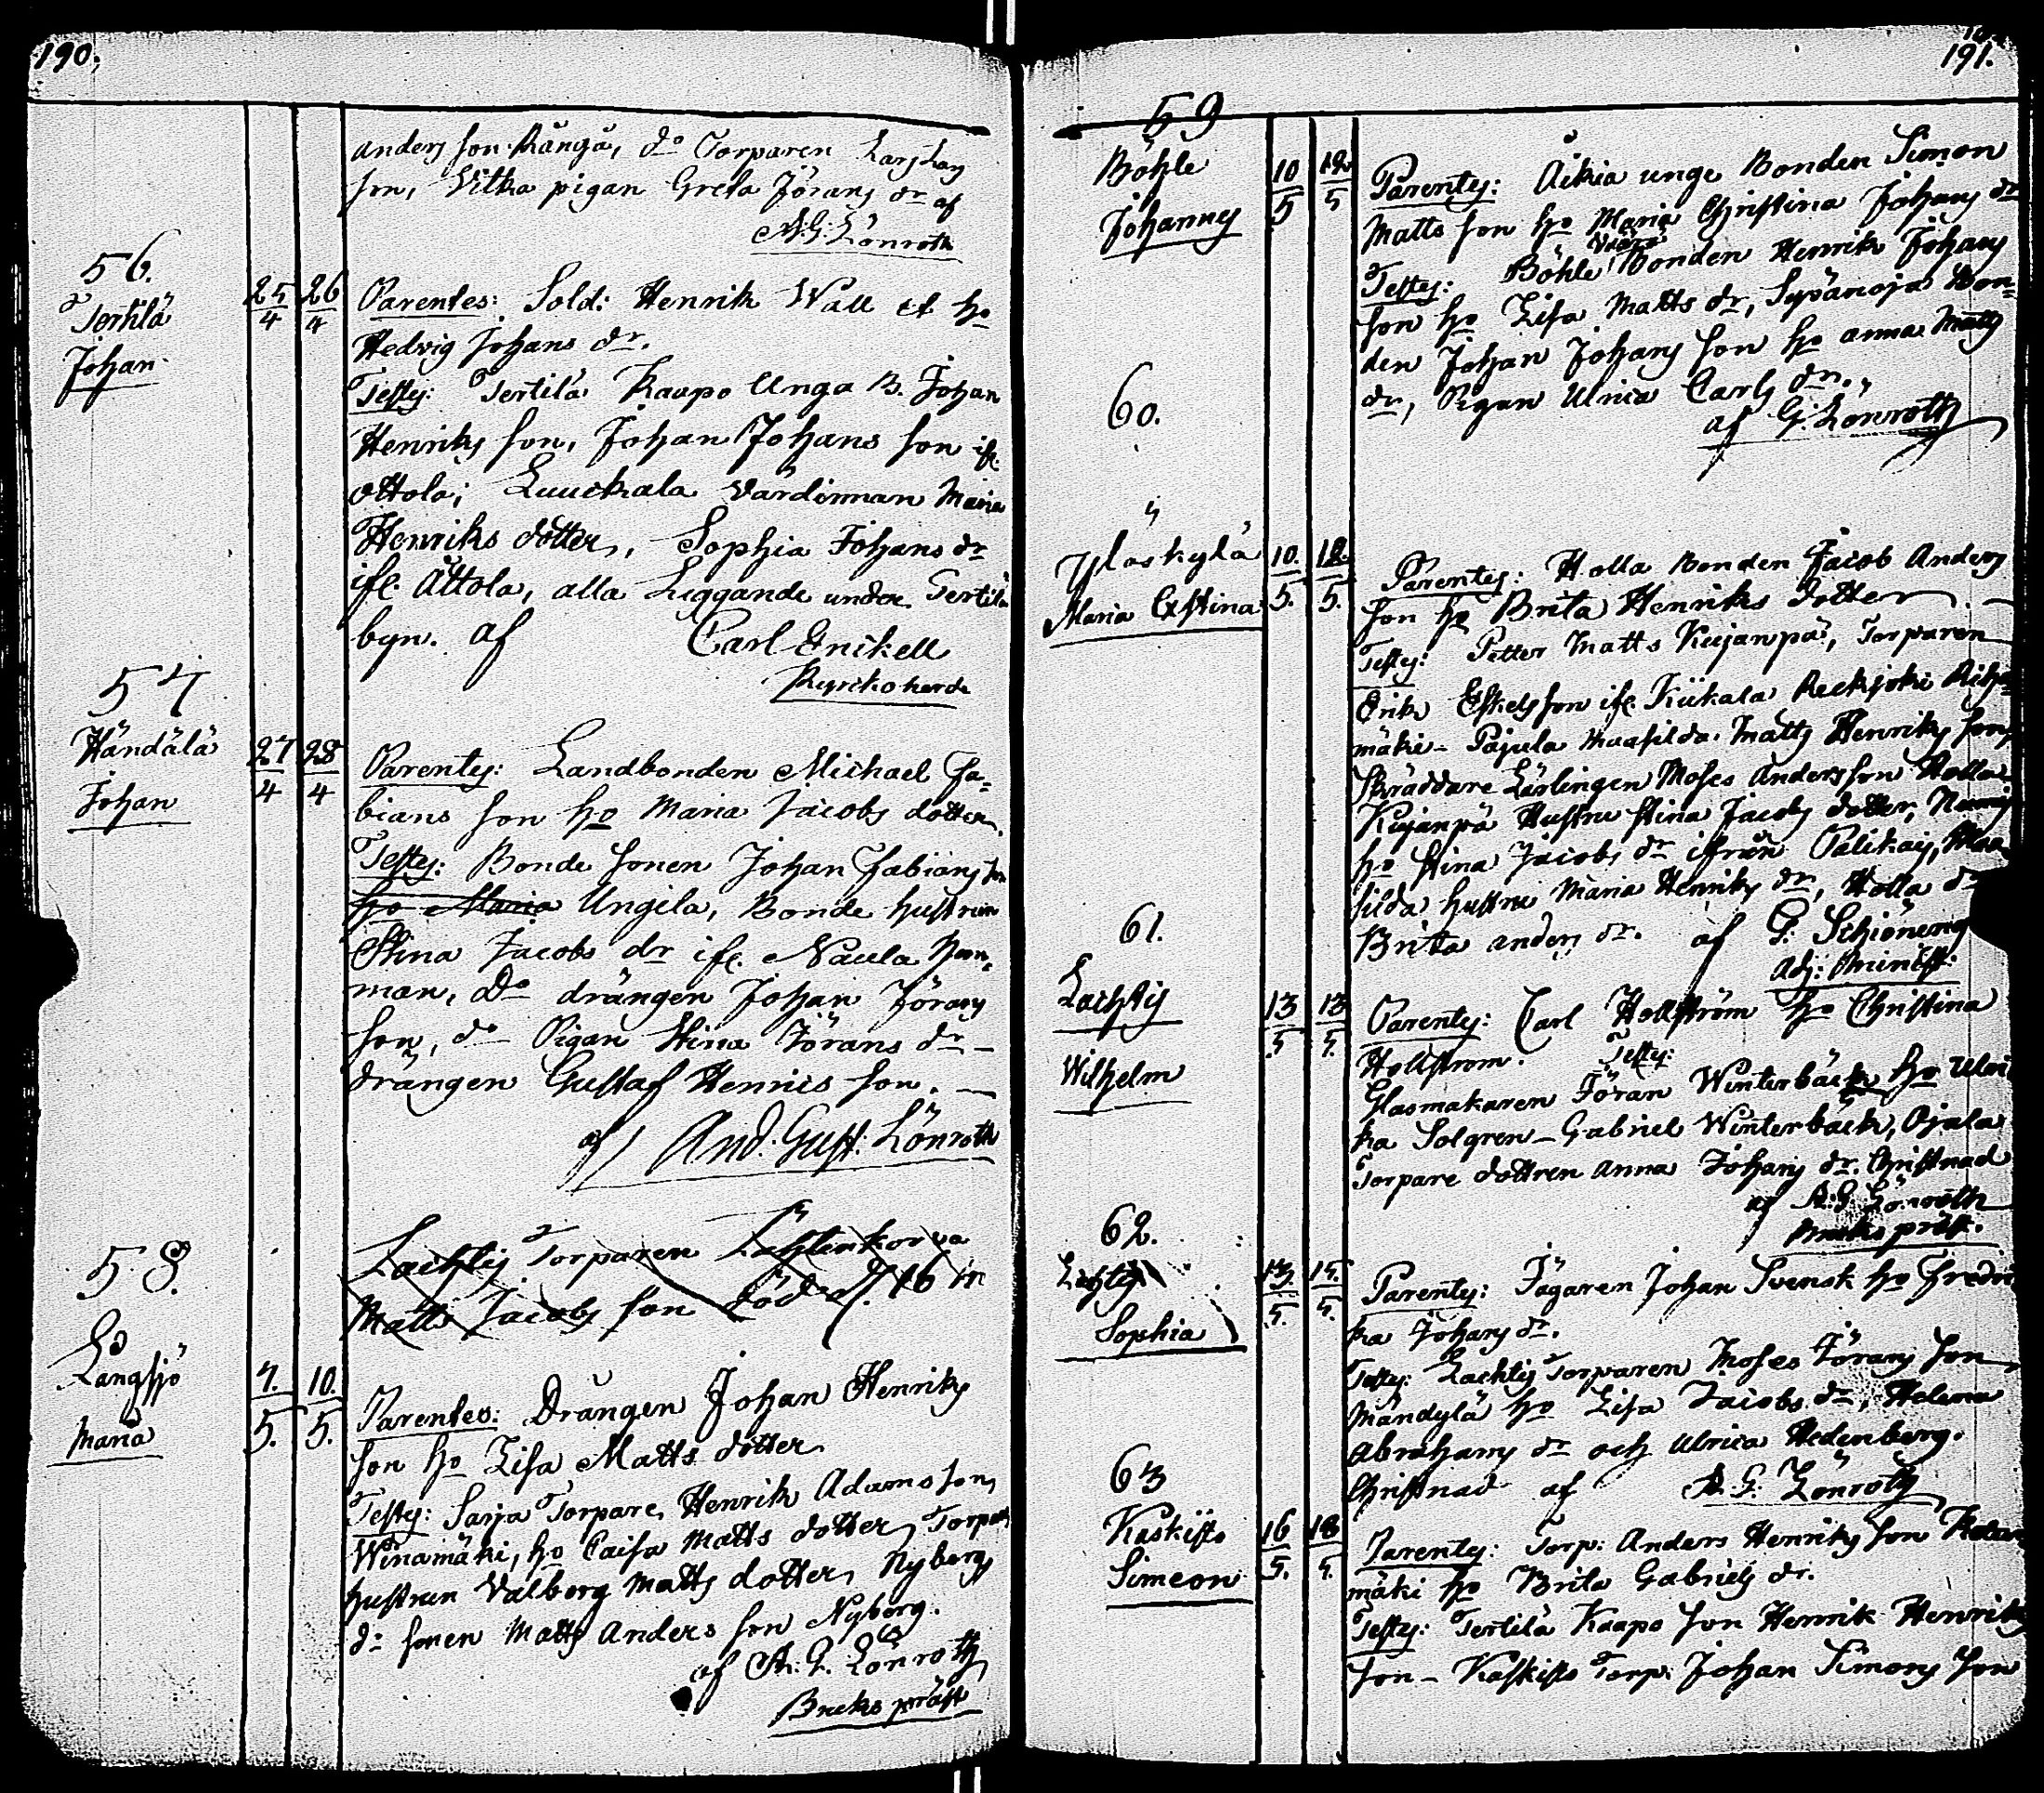 190.
Anders son Rångå, do Torparen Lars Lars
son, Vitka pigan Greta Jörans dr af
A: G: Lönroth
56.
Tertilä
Johan
25/4 26/4
Parentes: Sold: Henrik Wall et ho
Hedvig Johans dr.
Testes: Tertilä Kaapo Unga B. Johan
Henriks son, Johan Johans son ifr.
Ottola; Luuckala värdinnan Maria
Henriks dotter, Sophia Johans dr
ifr. Åttola, alla Liggande under Tertilä
byn. af Carl Enckell
Kyrckoherde
57
Händälä
Johan
27/4 28/4
Parentes: Landbonden Michael Fa-
bians son ho Maria Jacobs dotter.
Testes: Bonde sonen Johan Fabians son
ho Maria Ungila, Bonde hustrun
Stina Jacobs dr ifr. Naula
man, do drängen Johan Jörans
son, do Pigan Stina Jörans dr –
drängen Gustaf Henrics son. –
af And: Gust: Lönroth
Lachtis Torparen Lahtenkorva
Matts Jacobs son död d. 16 in
58.
Långsjö
Maria
7./5. 10./5.
Parentes: Drängen Johan Henriks
son ho Lisa Matts dotter
Testes: Sarja Torpare Henrik Adams son,
Winamäki, ho Caisa Matts dotter, Torpare
hustrun Valborg Matts dotter, Nybergs
do sonen Matts Anders son Nyberg.
af A: G: Lönroth
Bruks präst
191.
59
Böhle
Johannes
10/5 12/5
Parentes: Äikiä unge Bonden Simon
Matts son ho Maria Christina Johans dr
Testes: Böhle Bonden Henrik Johans
son ho Lisa Matts dr, Sypänoja Bon-
den Johan Johans son ho Anna Matts
dr, Pigan Ulrica Carls dr.
af G: Lönroth
60.
Yläskylä
Maria Christina
10./5. 12./5.
Parentes: Holla Bonden Jacob Anders
son ho Brita Henriks dotter. –
Testes: Petter Matts Kujanpä, Torparen
Erik Eskelsson ifr. Kiikala Reckjoki Rihi-
mäki – Pajula Matts Henriks son,
Skräddare Lärlingen Moses Andersson Holla
Kujanpä Hustru Stina Jacobs dotter,
ho Stina Jacobs dr ifrån Palikais, Maa-
silda hustru Maria Henriks dr, Holla dr
Brita Anders dr. af G: Schiöneng
Adj: Minist:
61.
Lachtis
Wilhelm
13/5. 13/5.
Parentes: Carl Hollström ho Christina
Hollstrom. Testes:
Glasmakaren Jöran Winterbäck ho Ulri
ka Solgren – Gabriel Winterbäck, Ojala
Torpare dottren Anna Johans dr. Christnad
af A: G: Lönroth
Bruks präst.
62.
Lachtis
Sophia
13./5. 15./5.
Parentes: Jägaren Johan Svensk ho Fredri
ka Johans dr.
Testes: Lachtis Torparen Moses Jörans son,
Mändylä ho Lisa Jacobs dr, Helena
Abrahams dr och Ulrica Hedenberg.
Christnad af A: G: Lönroth
63
Kaskisto
Simeon
16/5. 18/5.
Parentes: Torp: Anders Henriks son
mäki ho Brita Gabriels dr.
Testes: Tertilä Kaapo son Henrik Henriks
son – Kaskisto Torp: Johan Simons son